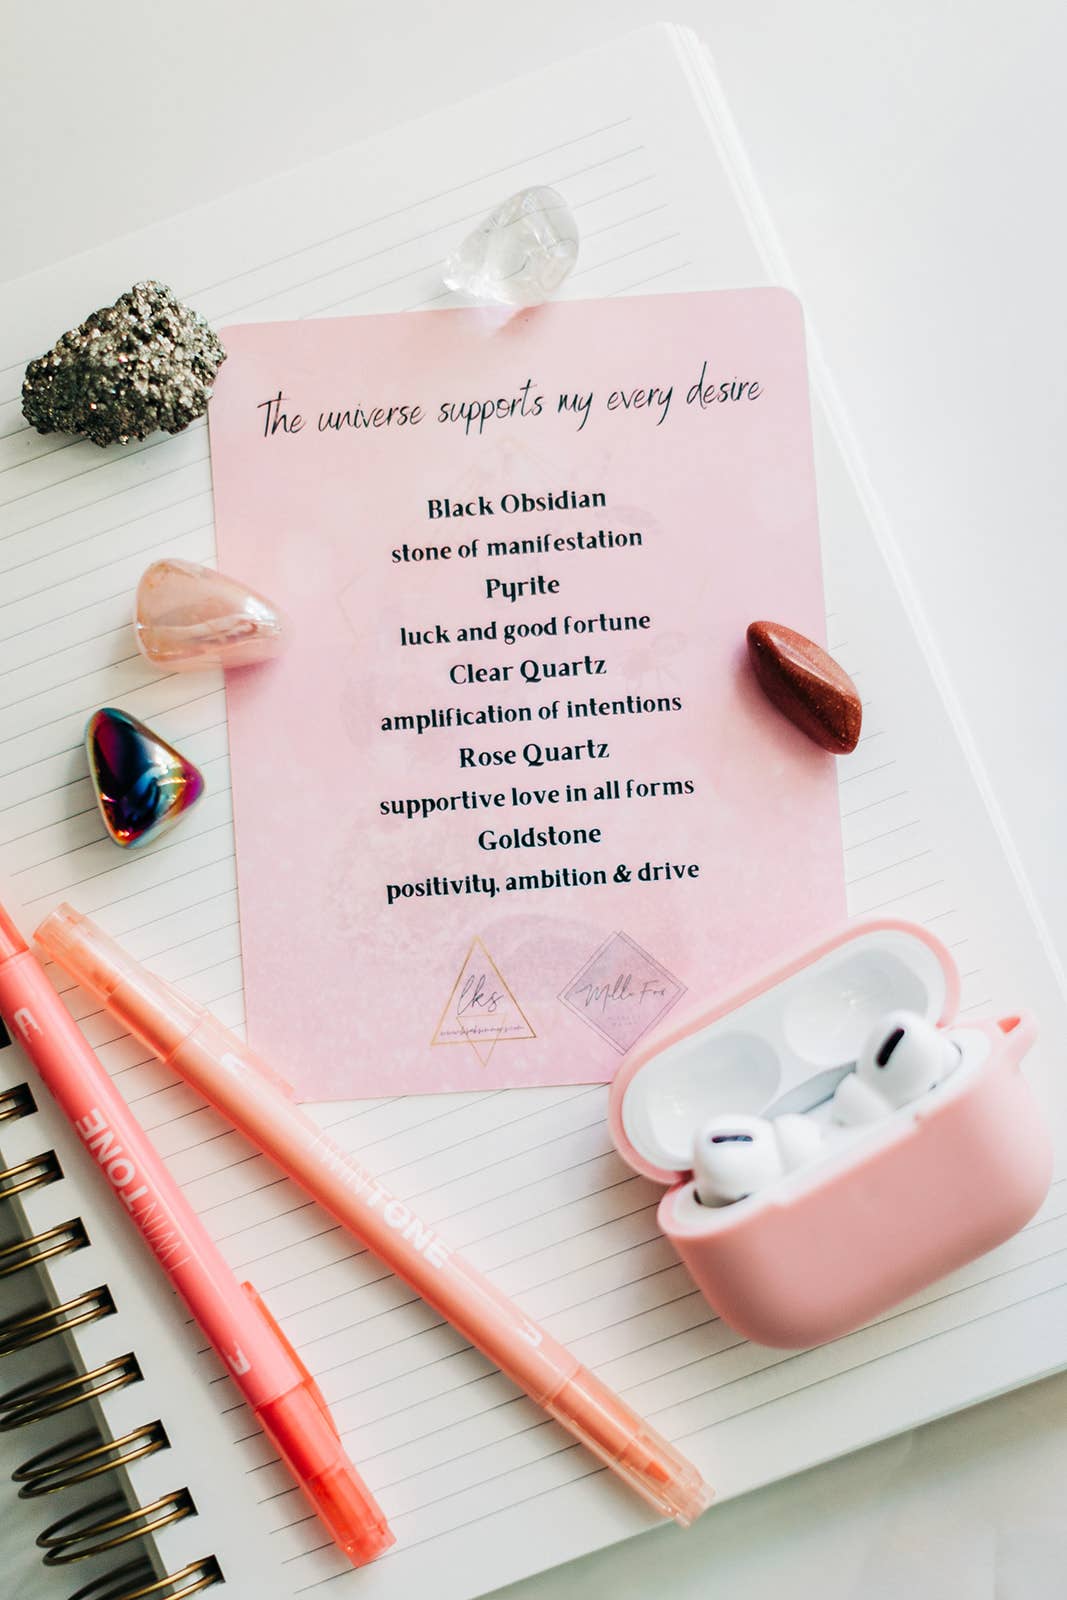 The universe supports my every desire
Black Obsidian
stone of manifestation
Pyrite
luck and good fortune
Clear Quartz
amplification of intentions
Rose Quartz
supportive love in all forms
Goldstone
positivity, ambition & drive
lks
TWINTONE
TWINTONE